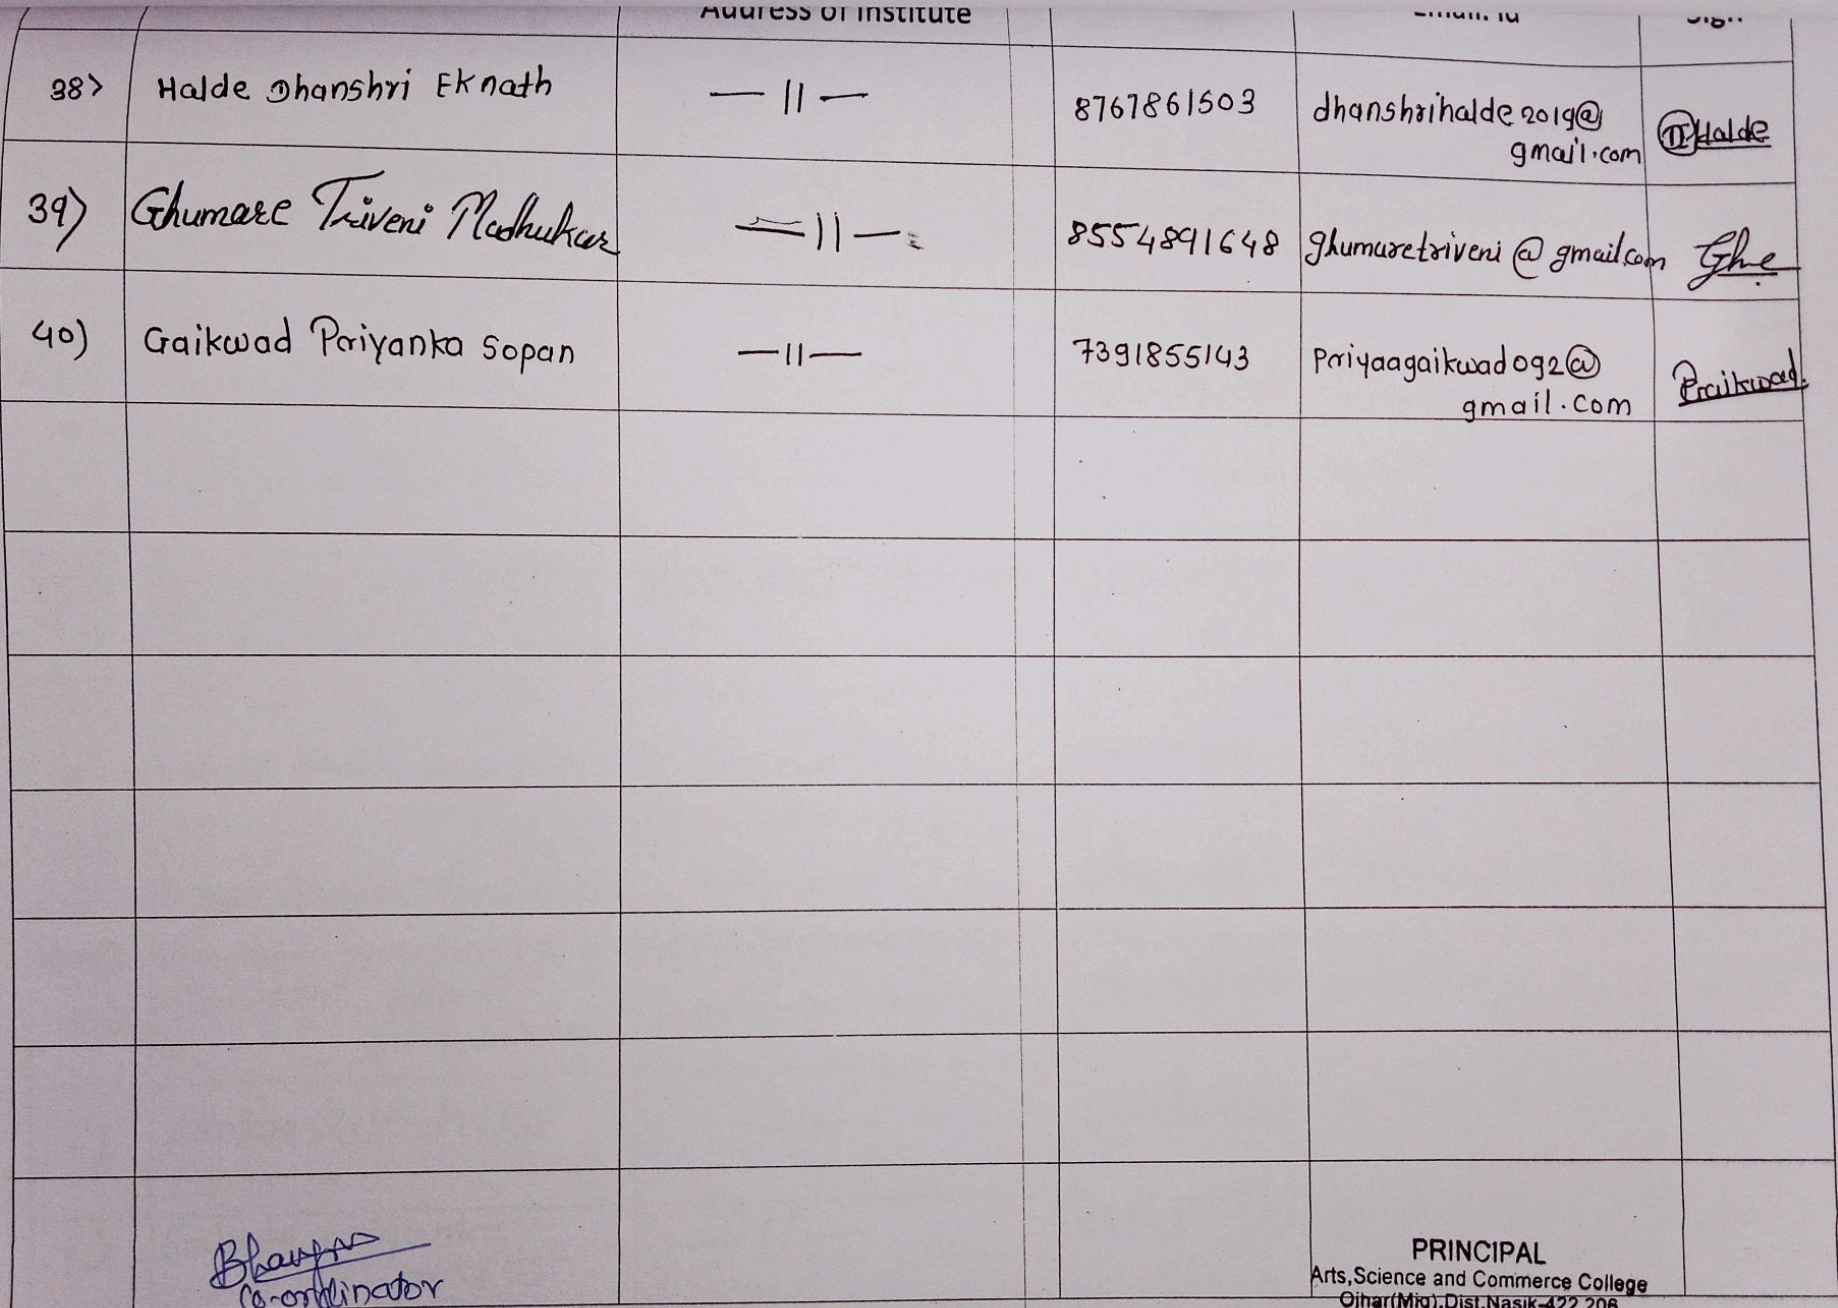 Address of Institute
Email. Id
Sign
38) Halde Dhanshri Eknath —11— 8767861503 dhanshrihalde2019@
gmail.com Halde
39) Ghumare Triveni Madhukar —11— 8554891648 ghumaretriveni@gmail.com Ghe
40) Gaikwad Priyanka Sopan —11— 7391855143 Priyaagaikwad092@
gmail.com PGaikwad.
Co-ordinator
PRINCIPAL
Arts,Science and Commerce College
Ojhar(Mig),Dist.Nasik-422 206